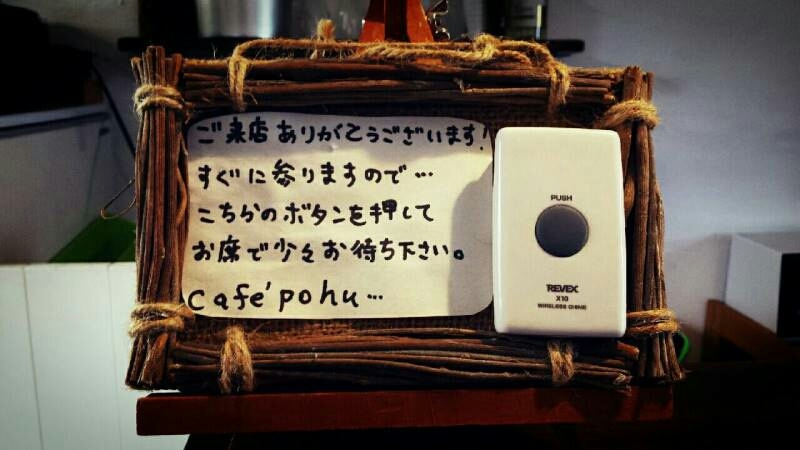 ご来店ありがとうございます!
すぐに参りますので…
こちらのボタンを押して
お席で少々お待ち下さい。
cafe'pohu…
PUSH
REVEX
X10
WIRELESS CHIME